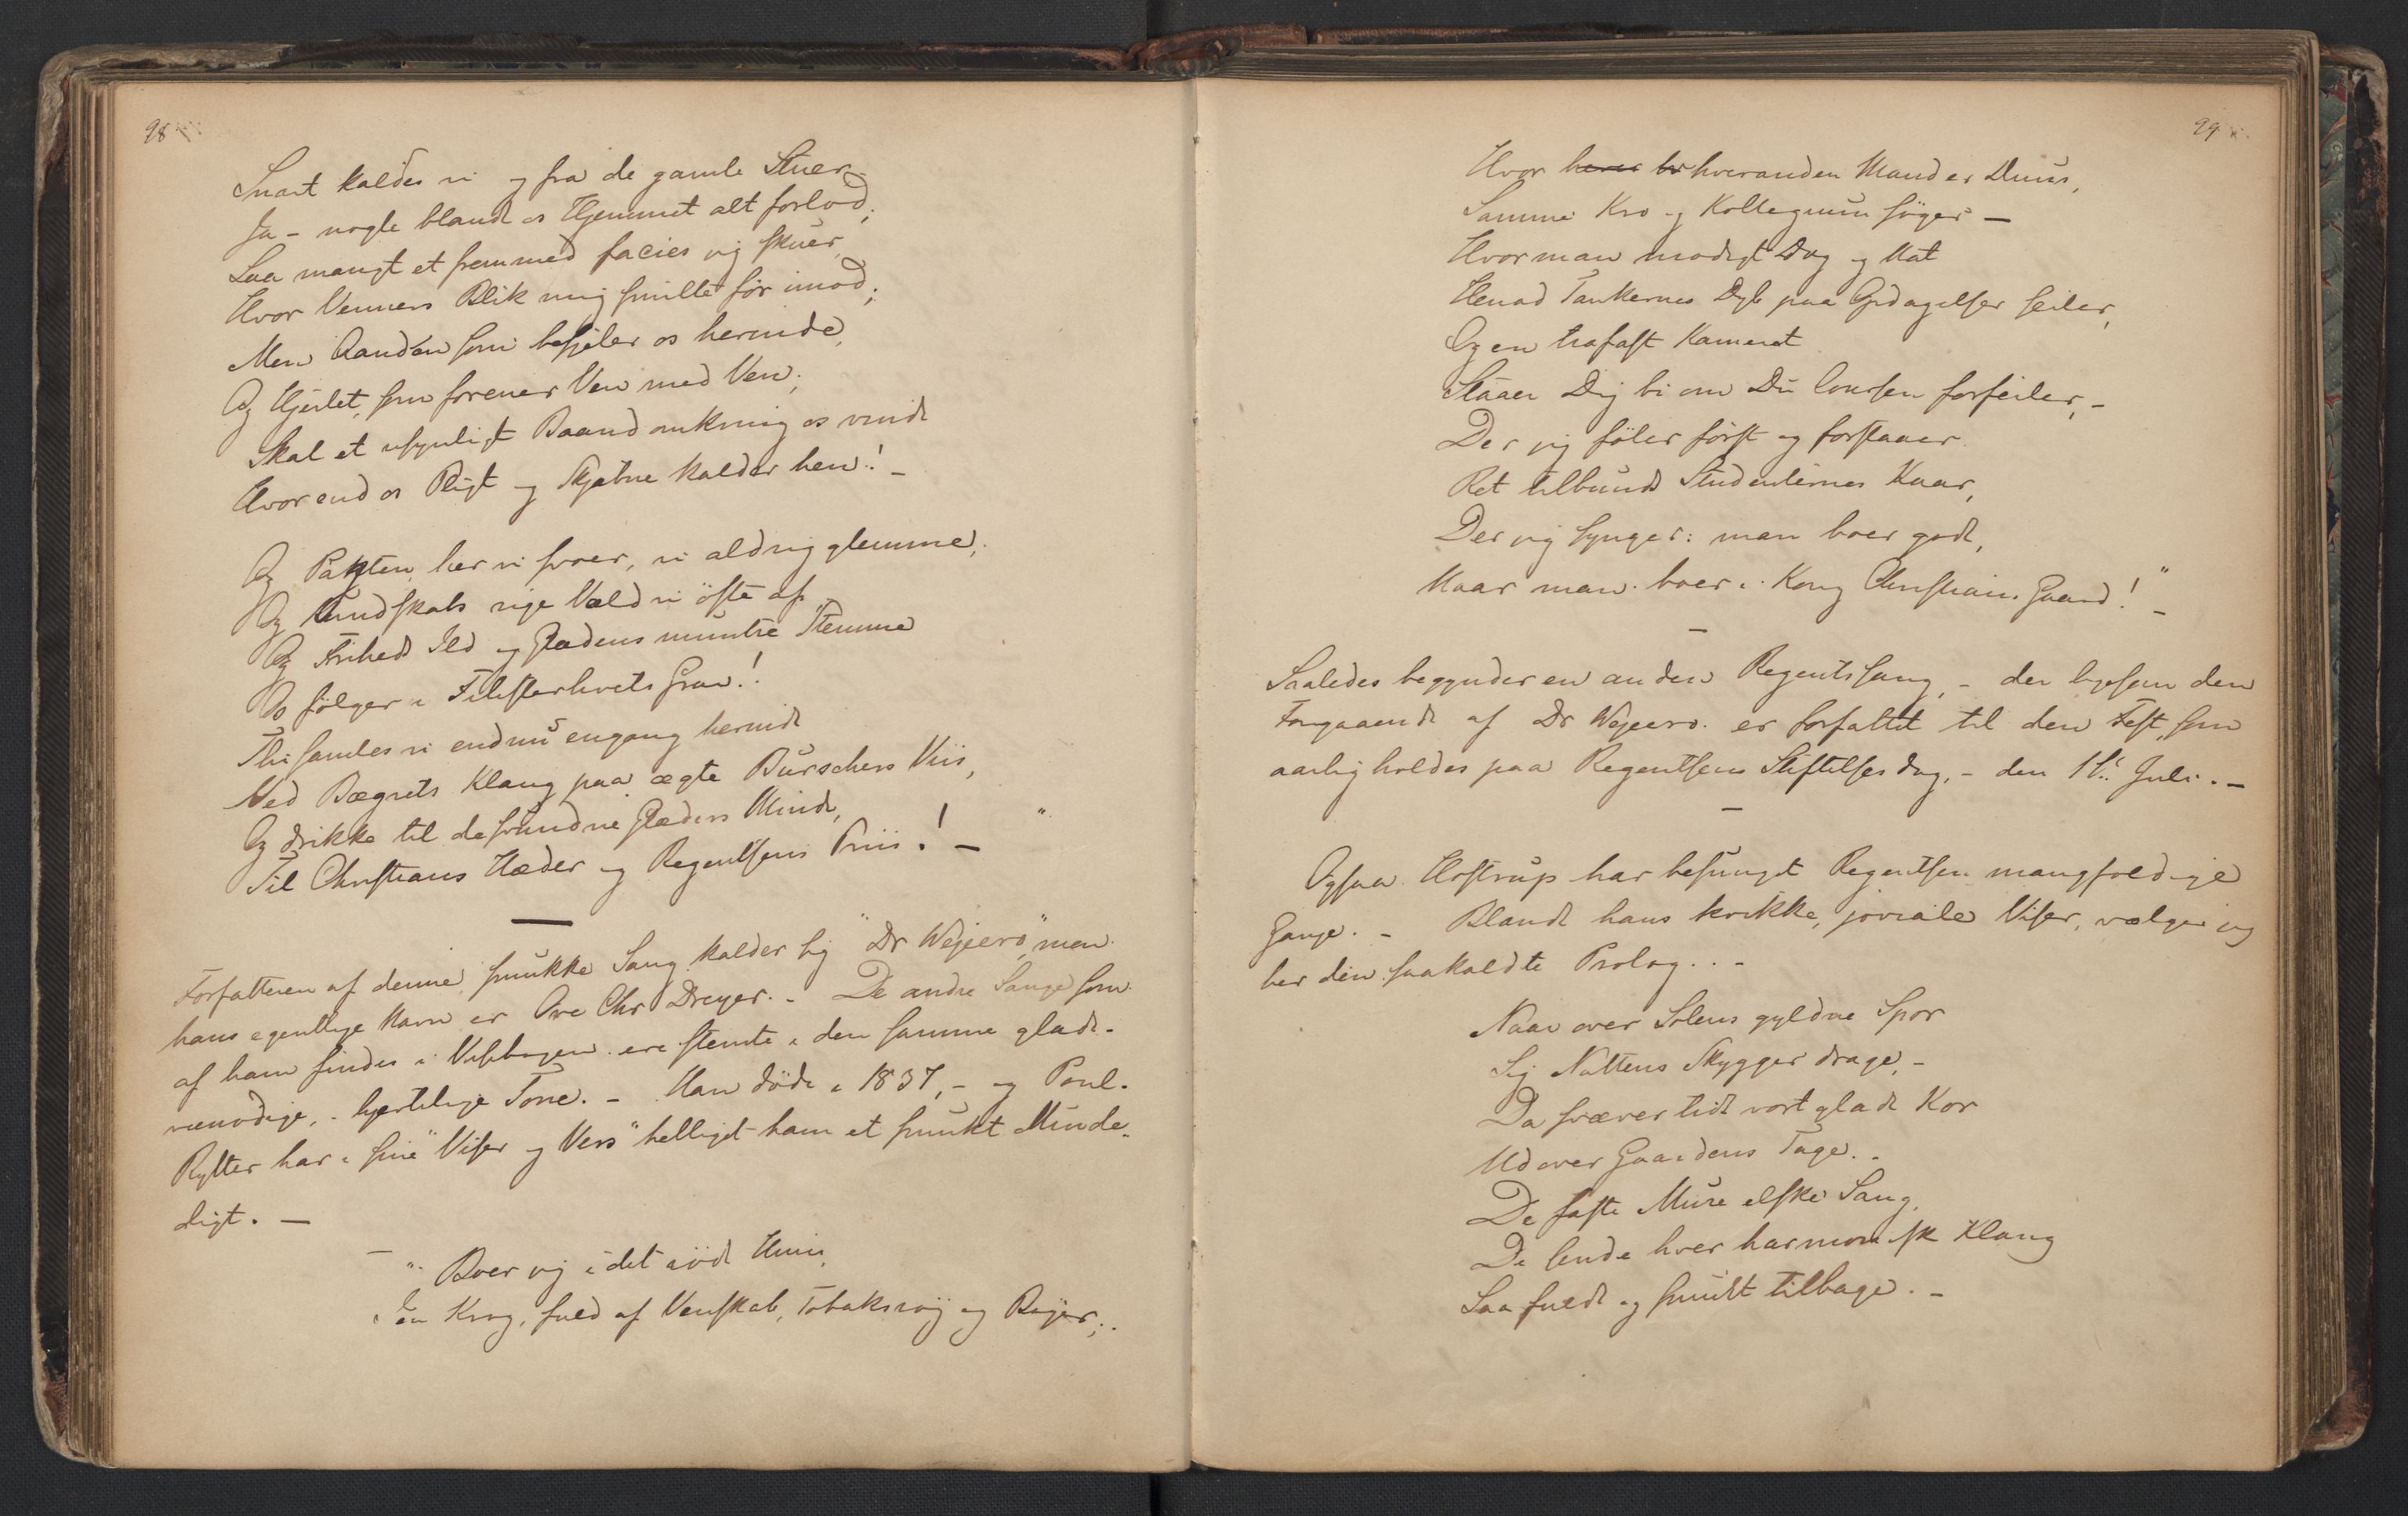 98
Snart kaldes vi og fra de gamle Stuer
Ja – nogle blandt os Hjemmet alt forlod;
Saa mangt et fremmed facies jeg skuer,
Hvor Venners Blik mig smilte før imod;
Men Aanden som besjæler os herinde,
Og Hjertet, som forener Ven med Ven,
Skal et usynligt Baand omkring os vinde
Hvorend os Pligt og Skjæbne kalder hen! –
Og Pagten, her vi svoer, vi aldrig glemme,
Og Kundskabs rige Væld vi øste af
Og Friheds Ild og Glædens muntre Stemme
Os følger i Filisterlivets Grav!
Thi samles vi endnu engang herinde
Ved Bægrets Klang paa ægte Burschers Viis,
Og drikke til de svundne Glæders Minde,
Til Christians Hæder og Regentsens Priis! – "
Forfatteren af denne smukke Sang kalder sig "Dr Wejeerø", men
hans egentlige Navn er Ove Chr Dreyer. – De andre Sange som
af ham findes i Visebogen ere stemte i den samme glade-
vemodige, – hjertelige Tone. – Han døde i 1837, – og Poul
Rytter har i sine "Viser og Vers" helliget ham et smukt Minde-
digt. –
– " Boer jeg i det røde Huus,
I en Krog, fuld af Venskab, Tobaksrøg og Bøger;
99
Hvor hveranden Mand er Duus,
Samme Kro og Kollegium søger –
Hvor man modigt Dag og Nat
Henad Tankernes Dyb paa Opdagelser seiler,
Og en trofast Kamerat
Staaer Dig bi om Du Coursen forfeiler, –
Der jeg føler først og forstaaer
Ret tilbunds Studenternes Kaar,
Der jeg synger: man boer godt,
Naar man boer i Kong Christians Gaard! " –
–
Saaledes begynder en anden Regentssang, – der ligesom den
Foregaaende af Dr Wejeerø er forfattet til den Fest, som
aarlig holdes paa Regentsens Stiftelsesdag, – den 1ste Juli. –
–
Ogsaa Hostrup har besunget Regentsen mangfoldige
Gange. – Blandt hans kvikke, joviale Viser, vælger jeg
her den saakaldte Prolog. . –
Naar over Solens gyldne Spor
Sig Nattens Skygger drage, –
Da svæver tidt vort glade Kor
Ud over Gaardens Tage. .
De faste Mure elske Sang,
De sende hver harmonisk Klang
Saa fuldt og smukt tilbage. –